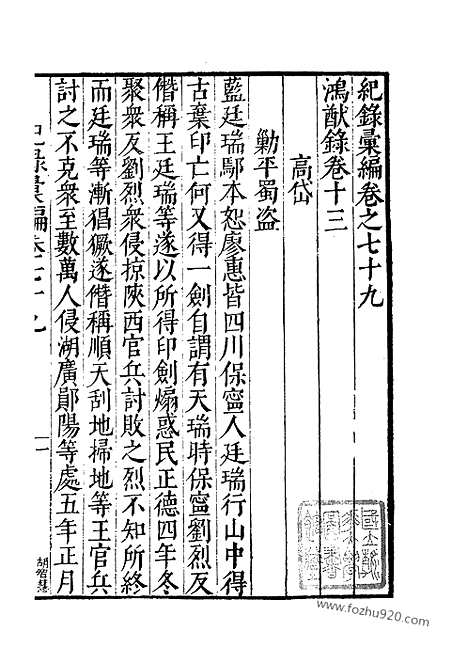 紀錄彙編卷之七十九
鴻猷錄卷十三
高岱
勦平蜀盜
藍廷瑞鄢本恕廖惠皆四川保寧人廷瑞行山中得
古棄印亡何又得一劍自謂有天瑞時保寧劉烈反
僭稱王廷瑞等遂以所得印劍煽惑民正德四年冬
聚衆反劉烈衆侵掠陝西官兵討敗之烈不知所終
而廷瑞等漸猖獗遂僭稱順天刮地掃地等王官兵
討之不克衆至數萬人侵湖廣鄖陽等處五年正月
紀錄彙編卷七十九
一
www.fozhu920.com